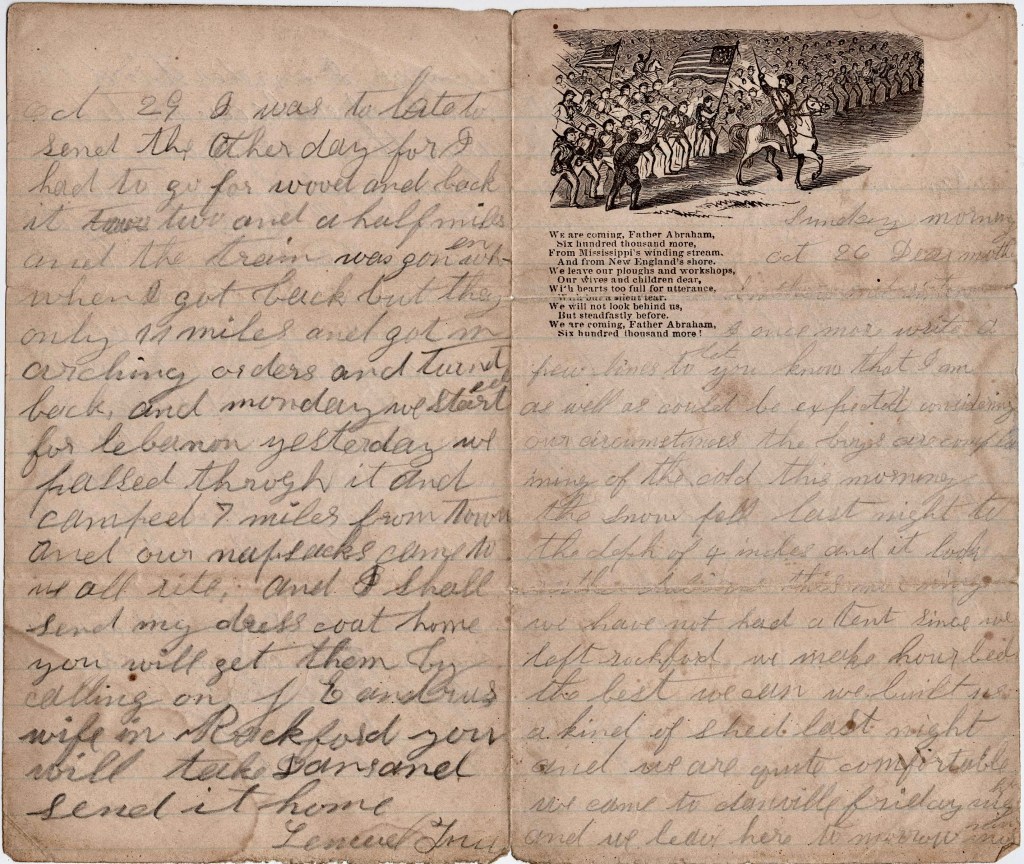 Oct 29 I was to late to
send the other day for I
had to go for wood and back
it two and a half miles
and the train was gon
en
when I got back but they
only 11 miles and got m
arching orders and turnd
back, and monday we start
ed
for lebernon yesterday we
passed throgh it and
camped 7 miles from town
and our napsacks came to
us all rite, and I shall
send my dress coat home
you will get them by
calling on J E
wife in Rockford you
will take Dans and
send it home
WE are coming, Father Abraham,
Six hundred thousand more,
From Mississippi's winding stream.
And from New England's shore.
We leave our ploughs and workshops,
Our wives and children dear,
With hearts too full for utterance,
With but a silent tear.
We will not look behind us,
But steadfastly before.
We are coming, Father Abraham,
Six hundred thousand more!
Sunday morning
oct 26 Dear
I once more write a
few lines to let you know that I am
as well as could be expected considering
our circumstances the boys are compla
ining of the cold this morning
the snow fell last night to
the depth of 4 inches and it look
this morning
we have not had a tent since we
left rockford we make hour bed
the best we can we built us
a kind of shed last night
and we are quite comfortable
we came to danville friday
and we leav here to morrow